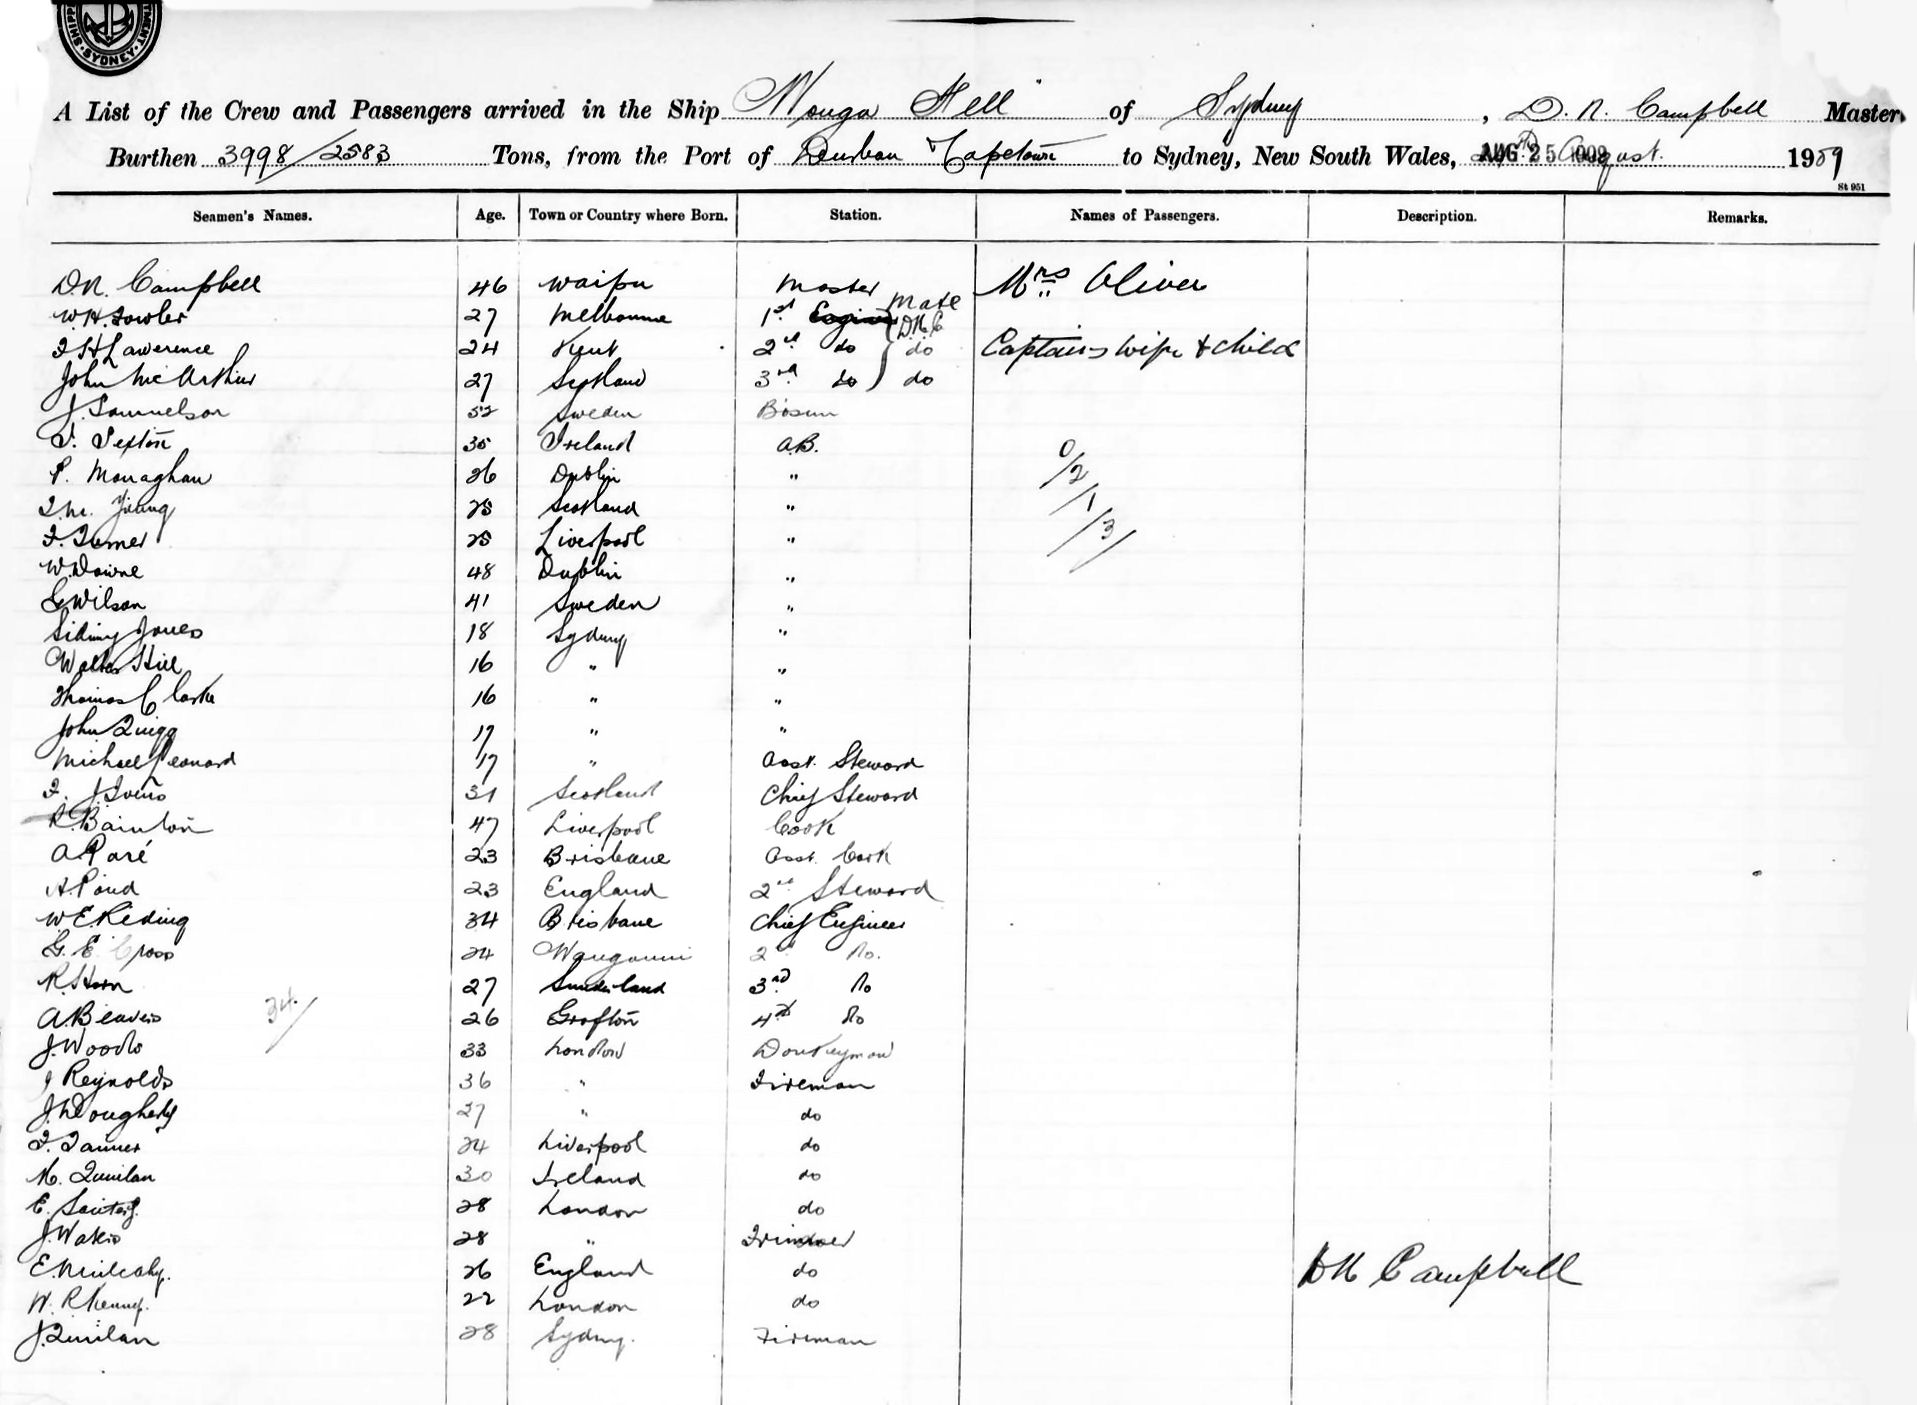 SHIPP MENT
· SYDNEY ·
A List of the Crew and Passengers arrived in the Ship Wonga Fell of Sydney, D. N. Campbell Master
Burthen 3998/2583 Tons, from the Port of Durban & Capetown to Sydney, New South Wales, AUG 25 1909 August. 1909
St 951
Seamen's Names. Age. Town or Country where Born. Station. Names of Passengers. Description. Remarks.
D.N. Campbell 46 Waipu Master Mrs Oliver
W.H. Fowler 27 Melbourne 1st Mate D.N.C
J H Lawerence 24 Kent 2nd do do Captains wife & child
John McArthur 27 Scotland 3rd do do
J. Samuelson 52 Sweden Bosun
T. Sexton 35 Ireland A.B.
P. Monaghan 26 Dublin "
Young 25 Scotland "
Turner 25 Liverpool "
W. Downe 48 Dublin "
G Wilson 41 Sweden "
Sidney Jones 18 Sydney "
Walter Hill 16 " "
Thomas Clarke 16 " "
John Quigg 17 " "
Michael Leonard 17 " Asst. Steward
31 Scotland Chief Steward
R. Bainton 47 Liverpool Cook
A. Paré 23 Brisbane Asst. Cook
A. Pond 23 England 2nd Steward
W E Reding 34 Brisbane Chief Engineer
G. E. Cross 24 Wanganui 2nd Do.
R. Horn 27 Sunderland 3rd Do
A. Beavis 26 Grafton 4th Do
34/
J. Woods 33 London Donkeyman
J Reynolds 36 " Fireman
J. Dougherty 27 " do
T. Tanner 24 Liverpool do
M. Quinlan 30 Ireland do
E. 28 London do
J. Wakis 28 " Trimmer
E. Mulcahy. 26 England do
W. R Kenny. 22 London do
J. Quinlan 28 Sydney. Fireman
0/2/1/3/
D N Campbell